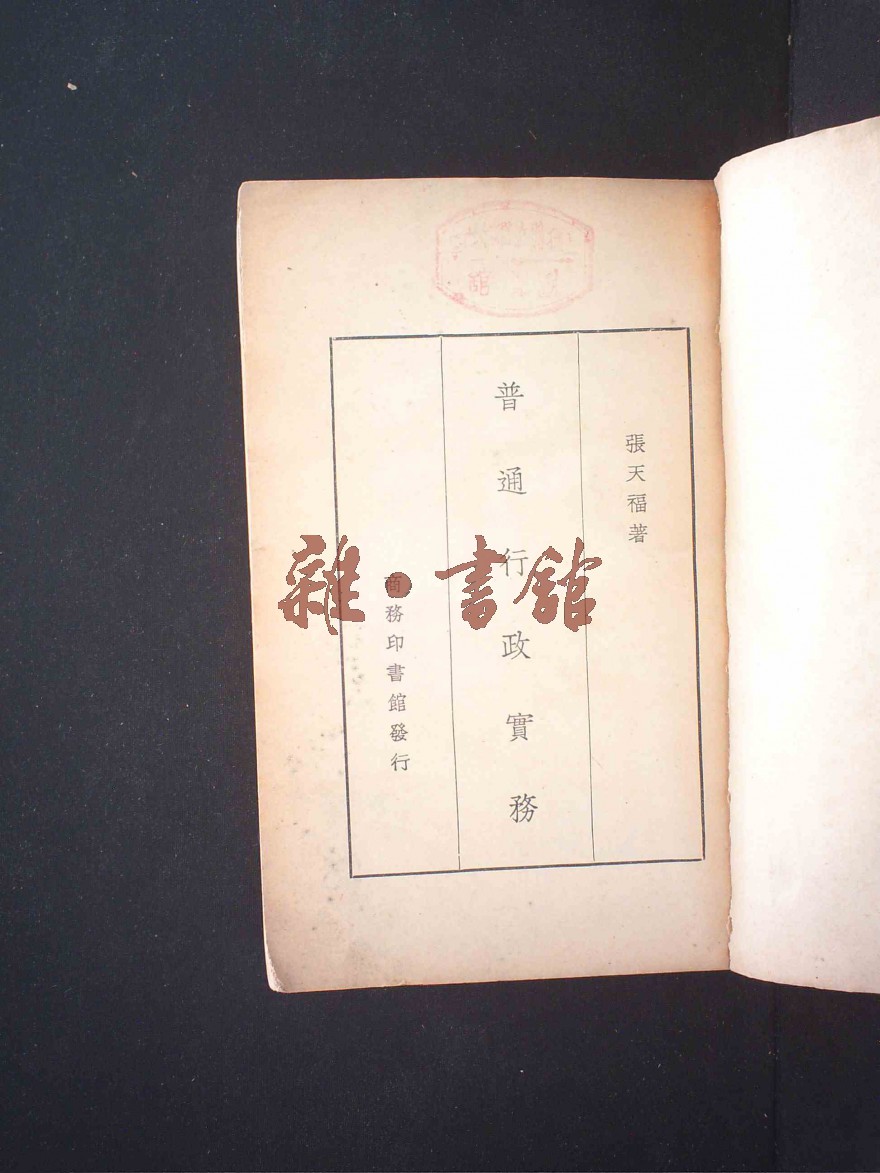 張天福著
普通行政實務
商務印書館發行
雜·書館